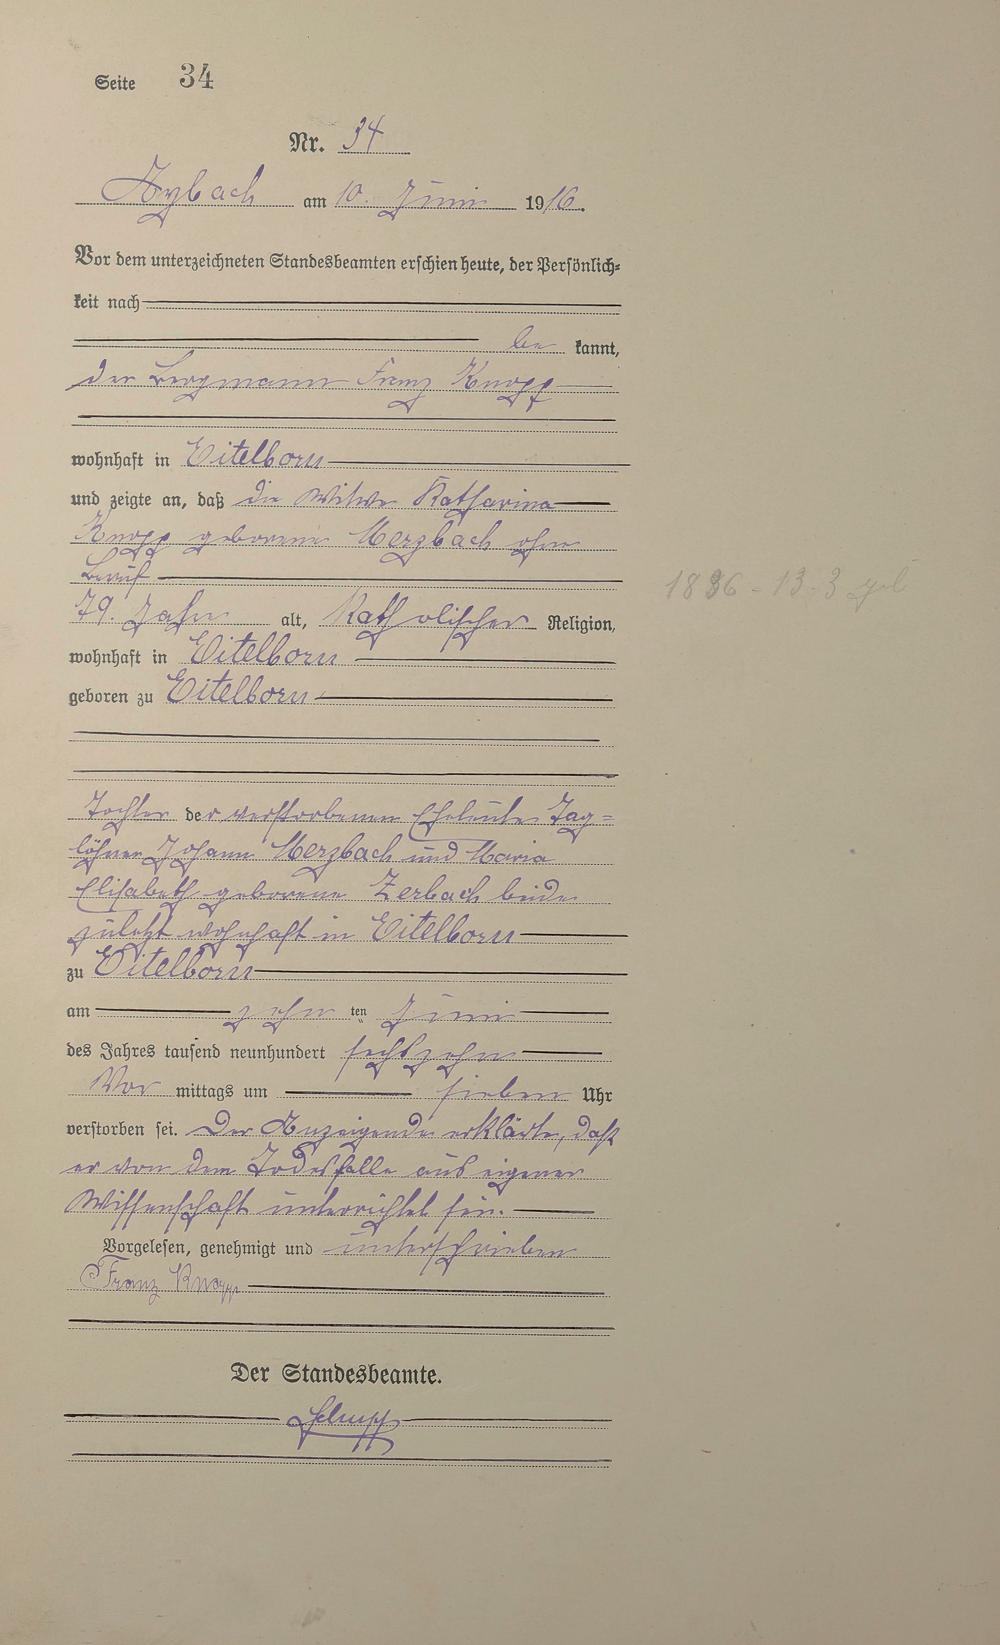 Seite 34
Nr. 34
Arzbach am 10. Juni 1916.
Vor dem unterzeichneten Standesbeamten erschien heute, der Persönlich-
keit nach
be kannt,
der Bergmann Franz Knopp
wohnhaft in Eitelborn
und zeigte an, daß die Witwe Katharina
Knopp geborene Merzbach ohne
Beruf
79. Jahre alt, Katholischer Religion,
wohnhaft in Eitelborn
geboren zu Eitelborn
Tochter der verstorbenen Eheleute Tag=
löhner Johann Merzbach und Maria
Elisabeth geborene Zerbach beide
zuletzt wohnhaft in Eitelborn
zu Eitelborn
am zehn ten Juni
des Jahres tausend neunhundert sechszehn
Vor mittags um sieben Uhr
verstorben sei. Der Anzeigende erklärte, daß
er von dem Todesfalle aus eigener
Wissenschaft unterrichtet sei.
Vorgelesen, genehmigt und unterschrieben
Franz Knopp
Der Standesbeamte.
1836 - 13-3 geb